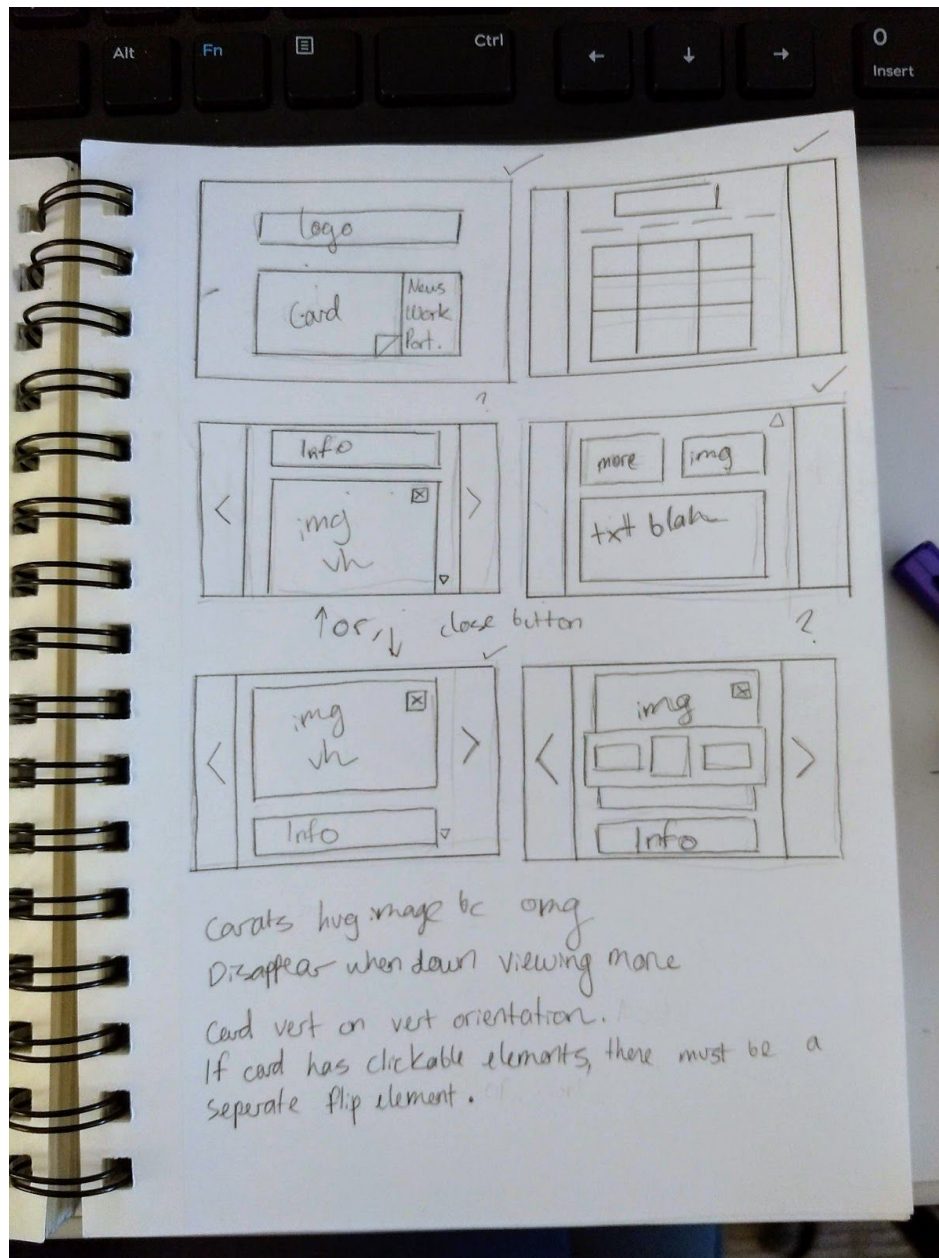 Alt
Fn
Ctrl
←
↓
→
0
Insert
logo
Card
News
Work
Port.
?
Info
img
vh
<
>
more
img
txt blah
↑or, ↓ close button
?
img
vh
Info
<
>
img
Info
<
>
Carats hug image bc omg
Disappear when down viewing more
Card vert on vert orientation.
If card has clickable elements, there must be a
seperate flip element.